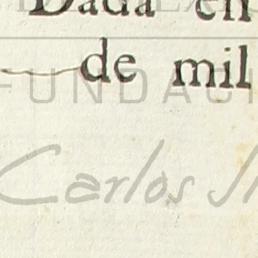 Dada en
de mil
FUNDACI
Carlos